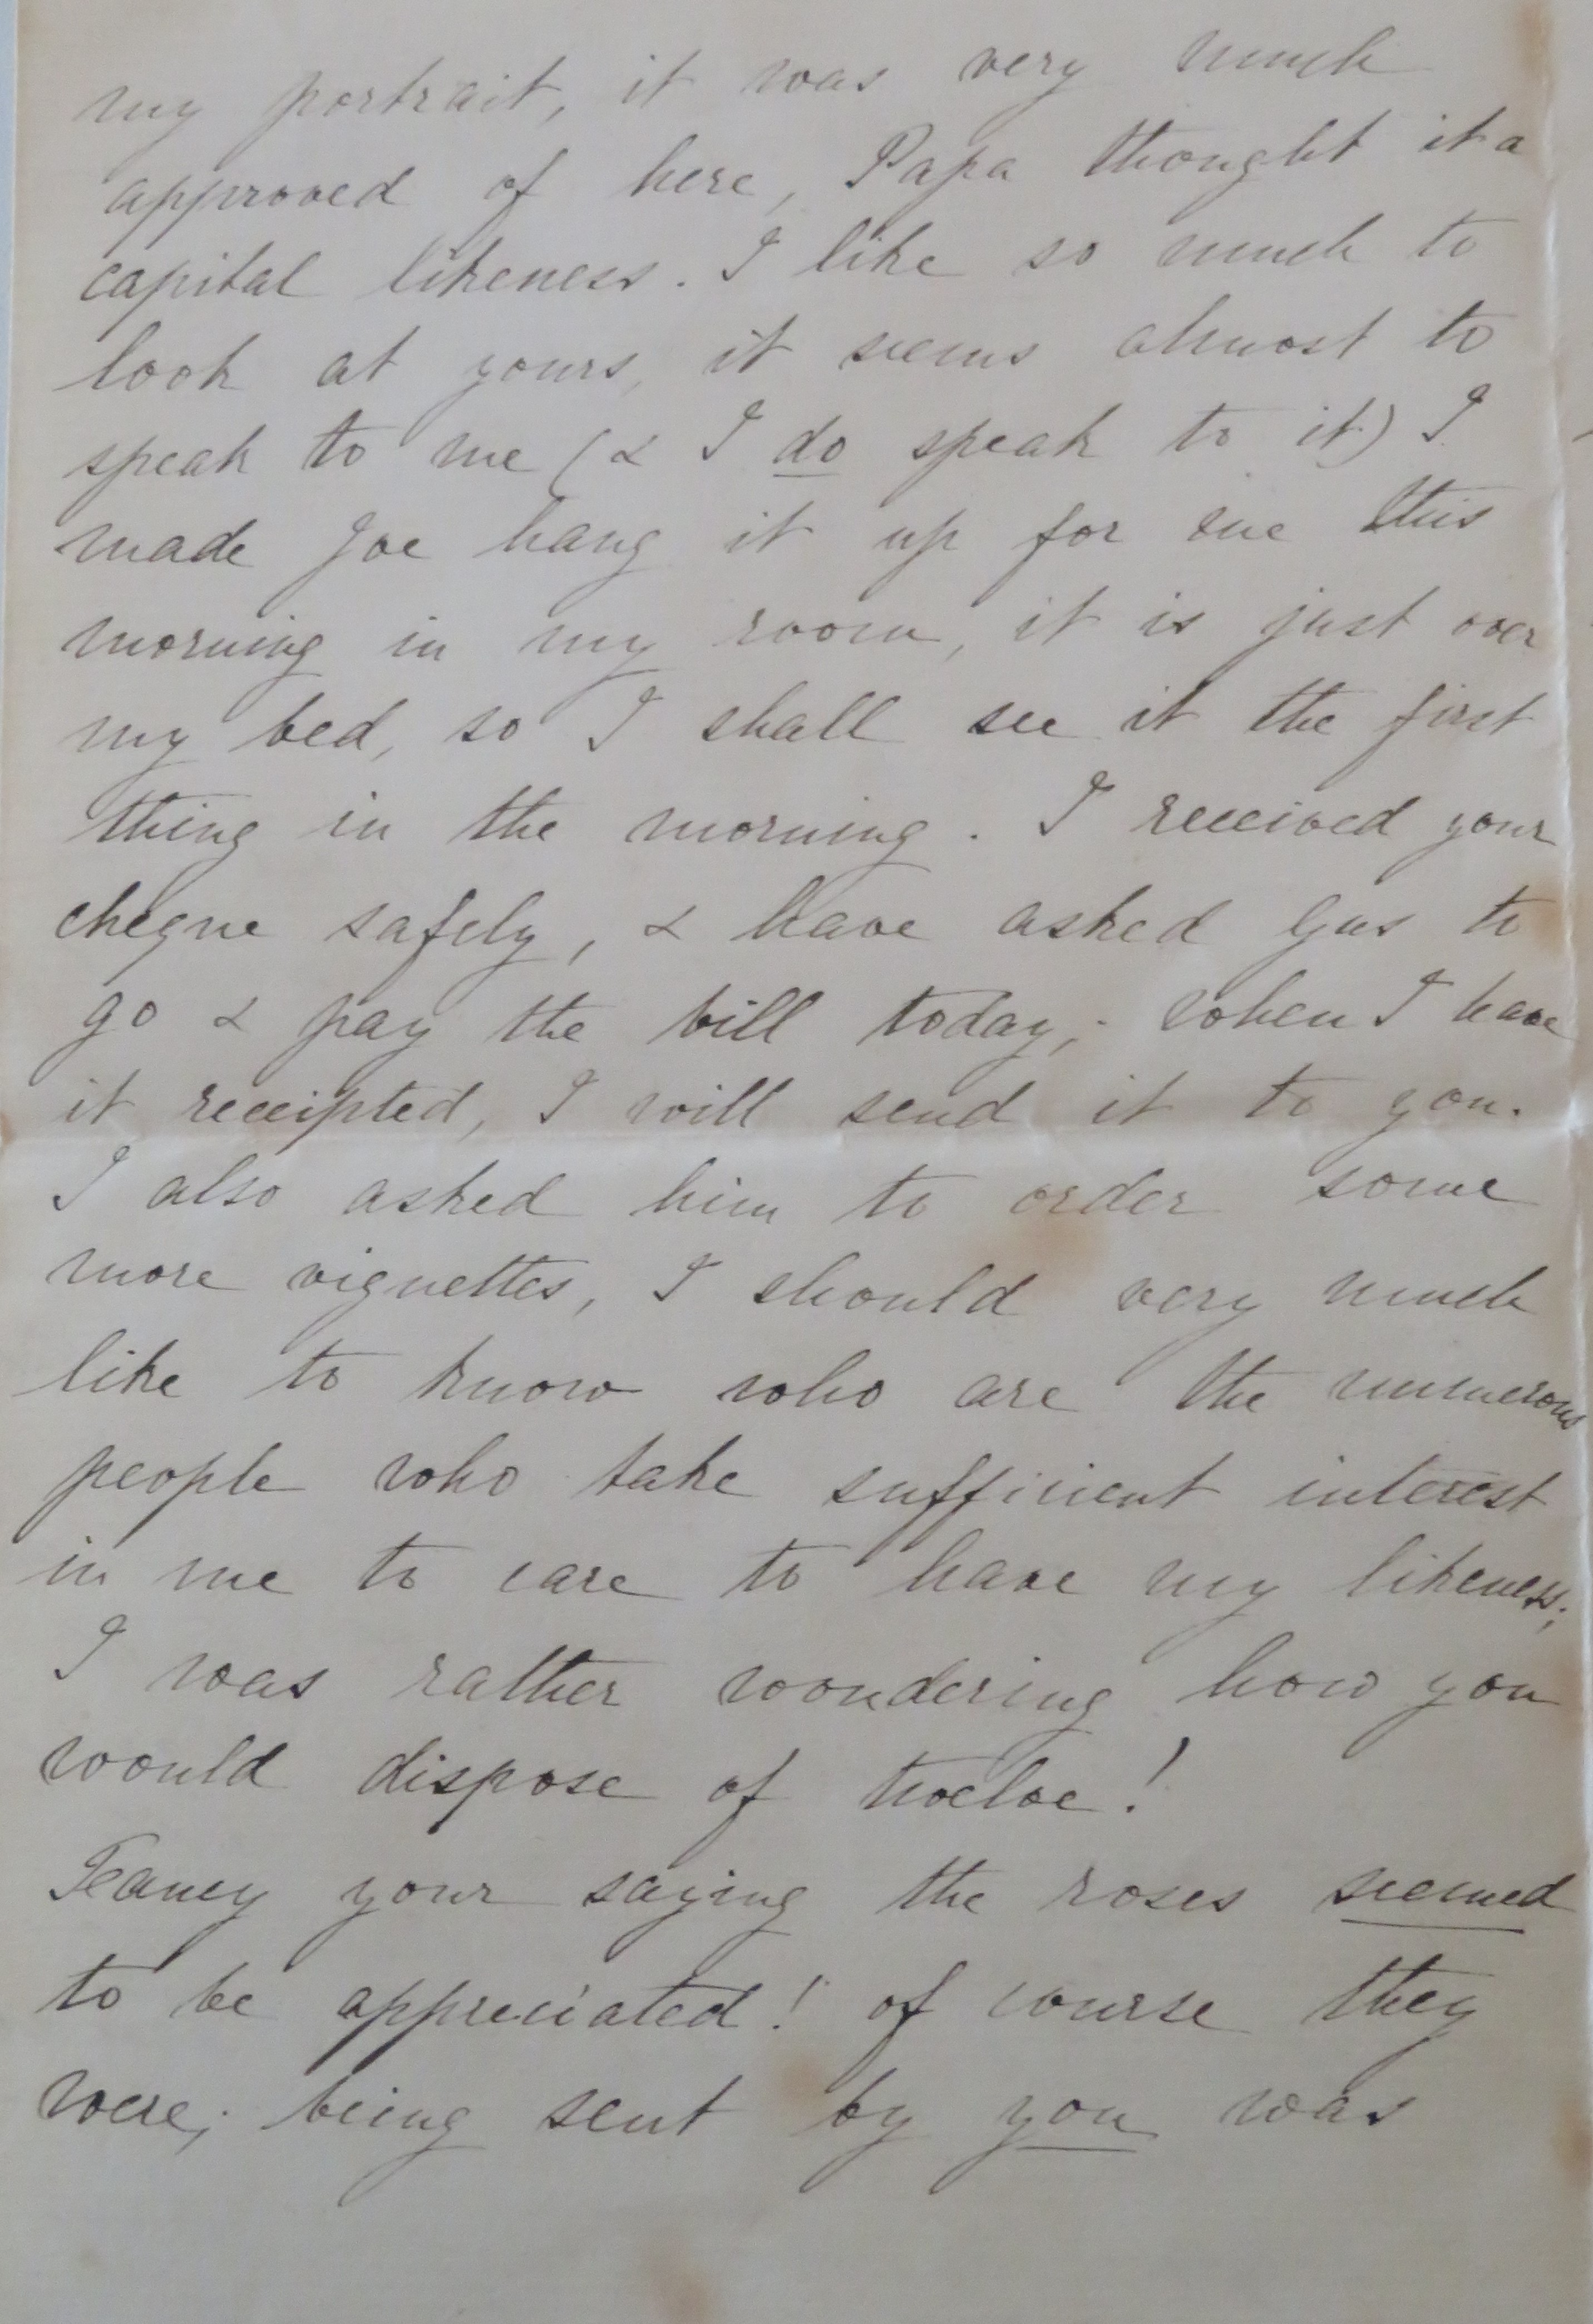 my portrait, it was very much
approved of here, Papa thought it a
capital likeness. I like so much to
look at yours, it seems almost to
speak to me (& I do speak to it) I
made Joe hang it up for me this
morning in my room, it is just over
my bed, so I shall see it the first
thing in the morning. I received your
cheque safely, & have asked Gus to
go & pay the bill today; when I have
it receipted, I will send it to you.
I also asked him to order some
more vignettes, I should very much
like to know who are the numerous
people who take sufficient interest
in me to care to have my likeness;
I was rather wondering how you
would dispose of twelve!
Feancy your saying the roses seemed
to be appreciated! of course they
were; being sent by you was